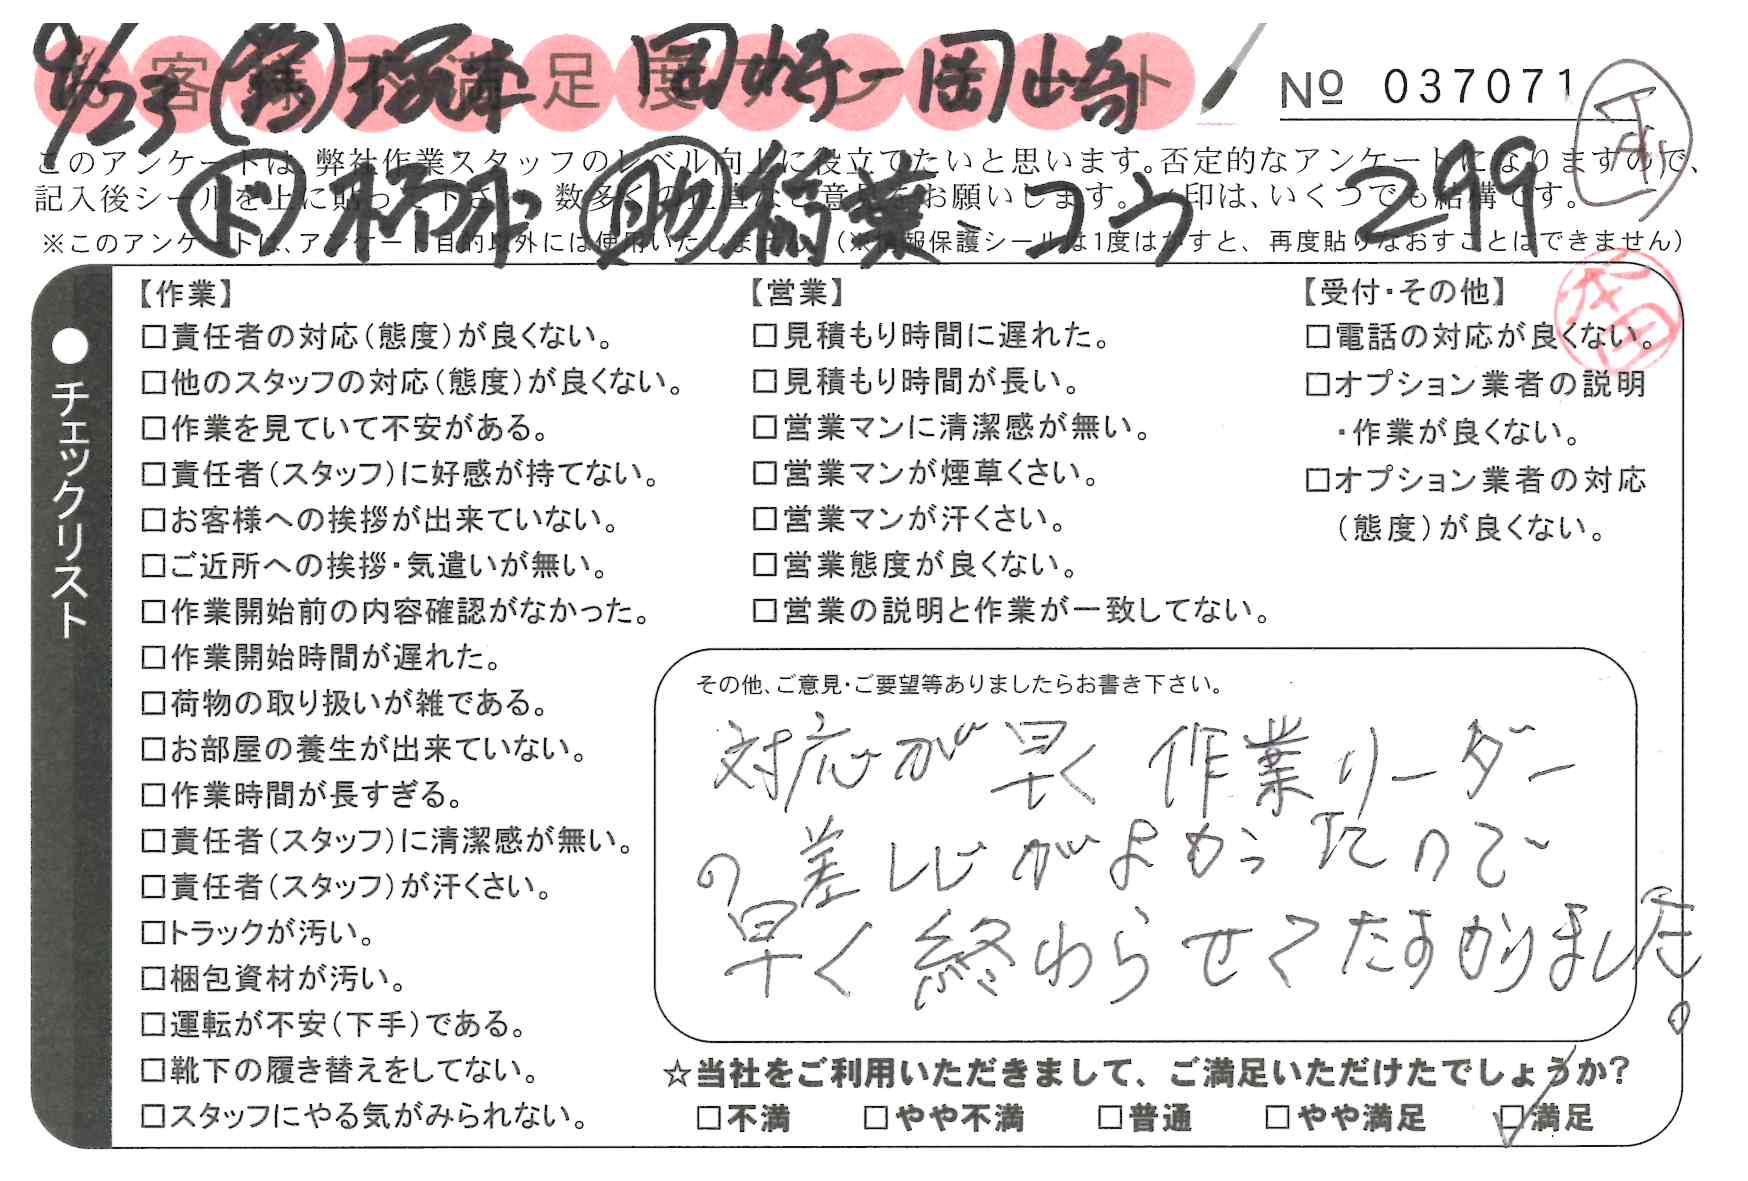 お客様ご満足度アンケート
9/23 (営)塚本 岡崎ー岡崎
No 037071
このアンケートは、弊社作業スタッフのレベル向上に役立てたいと思います。否定的なアンケートになりますので、
記入後シールを上に貼って下さい。数多くの正直なご意見をお願いします。✓印は、いくつでも結構です。
ド 柿本 助 稲葉 コウ 299
※このアンケートは、アンケート目的以外には使用いたしません。(※情報保護シールは1度はがすと、再度貼りなおすことはできません)
●チェックリスト
【作業】
□責任者の対応(態度)が良くない。
□他のスタッフの対応(態度)が良くない。
□作業を見ていて不安がある。
□責任者(スタッフ)に好感が持てない。
□お客様への挨拶が出来ていない。
□ご近所への挨拶・気遣いが無い。
□作業開始前の内容確認がなかった。
□作業開始時間が遅れた。
□荷物の取り扱いが雑である。
□お部屋の養生が出来ていない。
□作業時間が長すぎる。
□責任者(スタッフ)に清潔感が無い。
□責任者(スタッフ)が汗くさい。
□トラックが汚い。
□梱包資材が汚い。
□運転が不安(下手)である。
□靴下の履き替えをしてない。
□スタッフにやる気がみられない。
【営業】
□見積もり時間に遅れた。
□見積もり時間が長い。
□営業マンに清潔感が無い。
□営業マンが煙草くさい。
□営業マンが汗くさい。
□営業態度が良くない。
□営業の説明と作業が一致してない。
【受付・その他】
□電話の対応が良くない。
□オプション業者の説明
・作業が良くない。
□オプション業者の対応
(態度)が良くない。
その他、ご意見・ご要望等ありましたらお書き下さい。
対応が早く 作業リーダー
の差しじがよかったので
早く終わらせてたすかりました。
☆当社をご利用いただきまして、ご満足いただけたでしょうか?
□不満 □やや不満 □普通 □やや満足 □満足